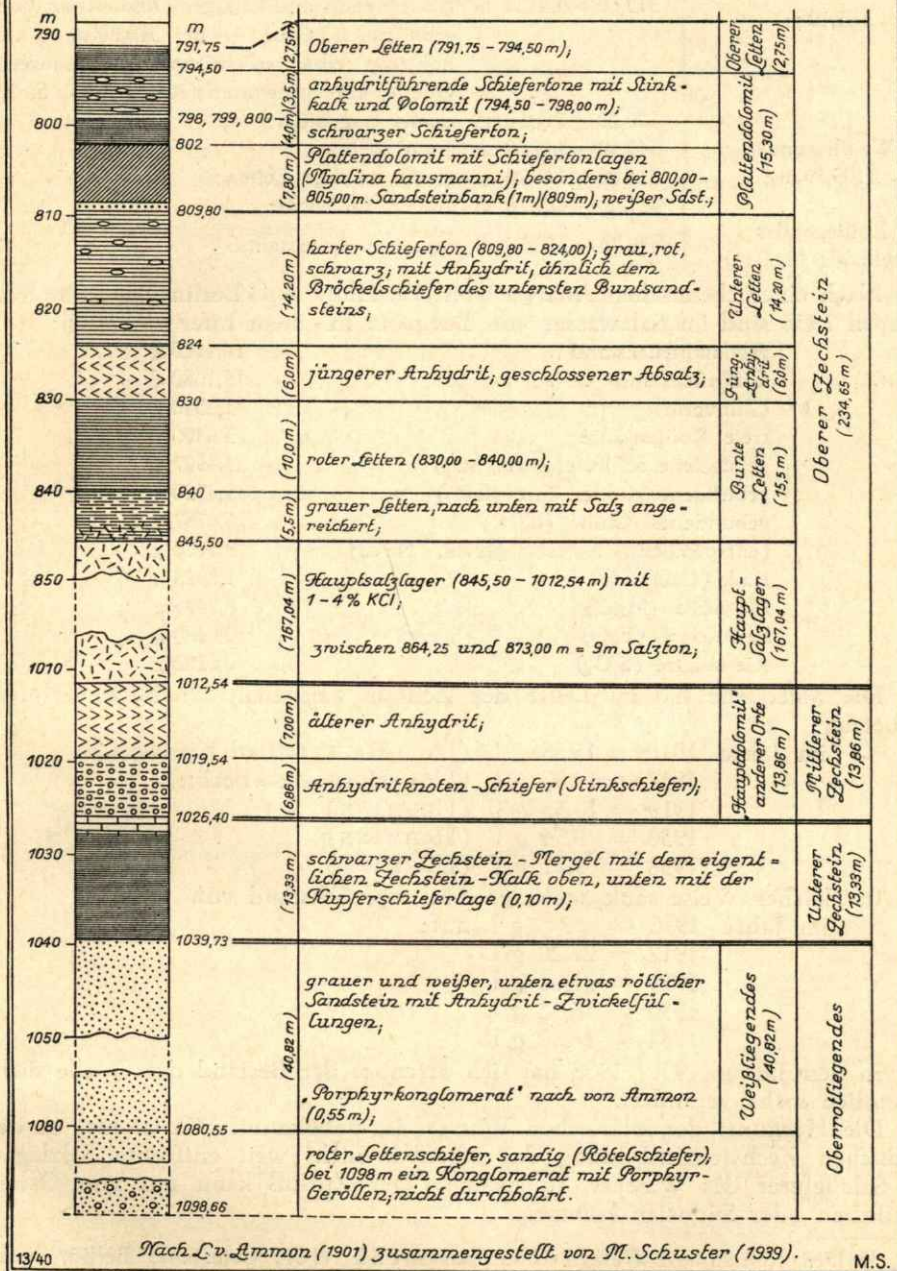 m
790
800
810
820
830
840
850
1010
1020
1030
1040
1050
1080
m
791,75
794,50
798, 799, 800
802
809,80
824
830
840
845,50
1012,54
1019,54
1026,40
1039,73
1080,55
1098,66
(2,75m)
(3,5m)
(4,0m)
(7,80 m)
(14,20 m)
(6,0m)
(10,0m)
(5,5m)
(167,04 m)
(7,00m)
(6,86m)
(13,33 m)
(40,82 m)
Oberer Letten (791,75 – 794,50 m);
anhydritführende Schiefertone mit Stink-
kalk und Dolomit (794,50 – 798,00 m);
schwarzer Schieferton;
Plattendolomit mit Schiefertonlagen
(Myalina hausmanni); besonders bei 800,00–
805,00m. Sandsteinbank (1m)(809m); weißer Sdst.;
harter Schieferton (809,80 – 824,00); grau, rot,
schwarz; mit Anhydrit, ähnlich dem
Bröckelschiefer des untersten Buntsand-
steins;
jüngerer Anhydrit; geschlossener Absatz;
roter Letten (830,00 – 840,00 m);
grauer Letten, nach unten mit Salz ange-
reichert;
Hauptsalzlager (845,50 – 1012,54 m) mit
1 – 4 % KCl;
zwischen 864,25 und 873,00 m = 9m Salzton;
älterer Anhydrit;
Anhydritknoten-Schiefer (Stinkschiefer);
schwarzer Zechstein-Mergel mit dem eigent-
lichen Zechstein-Kalk oben, unten mit der
Kupferschieferlage (0,10 m);
grauer und weißer, unten etwas rötlicher
Sandstein mit Anhydrit-Zwickelfül-
lungen;
„Porphyrkonglomerat" nach von Ammon
(0,55 m);
roter Lettenschiefer, sandig (Rötelschiefer);
bei 1098 m ein Konglomerat mit Porphyr-
Geröllen; nicht durchbohrt.
Oberer
Letten
(2,75m)
Plattendolomit
(15,30 m)
Unterer
Letten
(14,20 m)
Jüng.
Anhy-
drit
(6,0m)
Bunte
Letten
(15,5 m)
Haupt-
Salzlager
(167,04 m)
„Hauptdolomit"
anderer Orte
(13,86 m)
Weißliegendes
(40,82 m)
Oberer Zechstein
(234,65 m)
Mittlerer
Zechstein
(13,86 m)
Unterer
Zechstein
(13,33 m)
Oberrotliegendes
Nach L. v. Ammon (1901) zusammengestellt von M. Schuster (1939).
13/40
M.S.